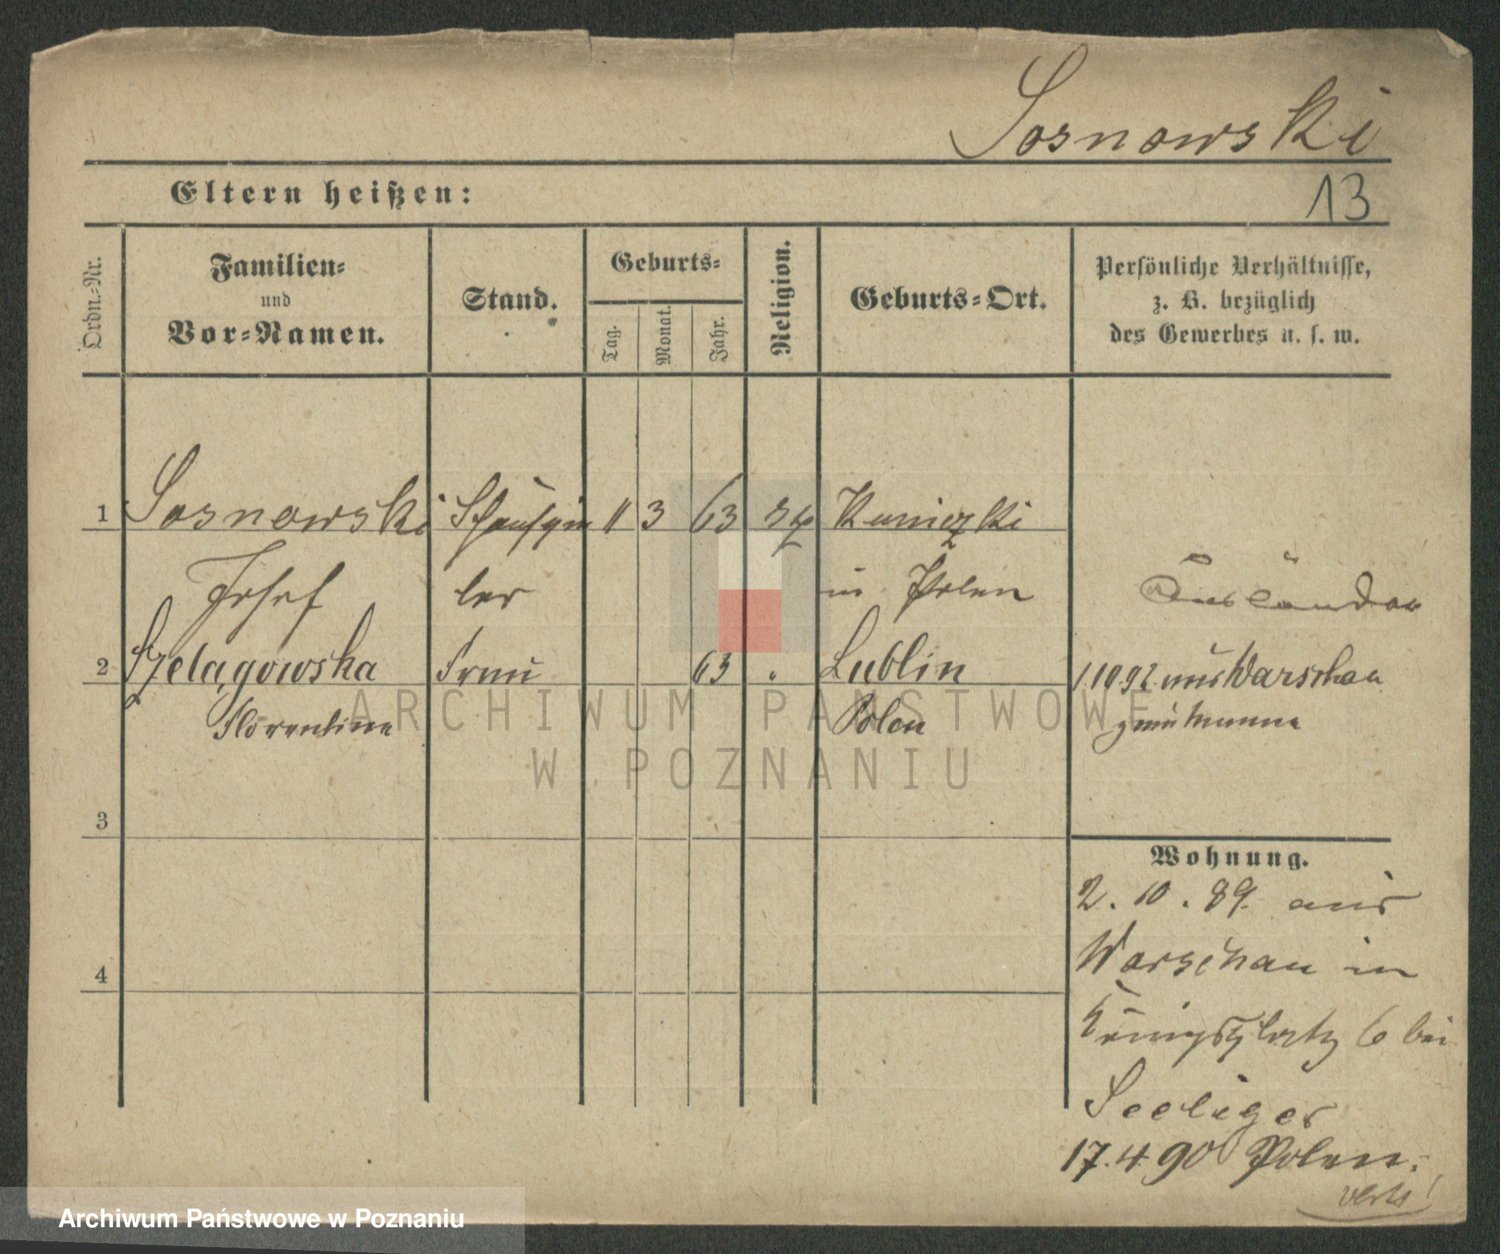 Sosnowski
Eltern heißen:
13
Ordn.-Nr.
Familien-
und
Vor-Namen.
Stand.
Geburts-
Tag.
Monat.
Jahr.
Religion.
Geburts-Ort.
Persönliche Verhältnisse,
z. B. bezüglich
des Gewerbes u. s. w.
1 Sosnowski Schauspie 11 3 63 Kuniczki
Josef ler in Polen Ausländer
2 Szelągowska Frau 63 " Lublin 1.10.92 aus Warschau
Florentine Polen
3
4
Wohnung.
2. 10. 89. aus
Warschau in
Königsplatz 6 bei
Seeliger
17.4.90 Polen.
verte!
ARCHIWUM PAŃSTWOWE
W POZNANIU
Archiwum Państwowe w Poznaniu